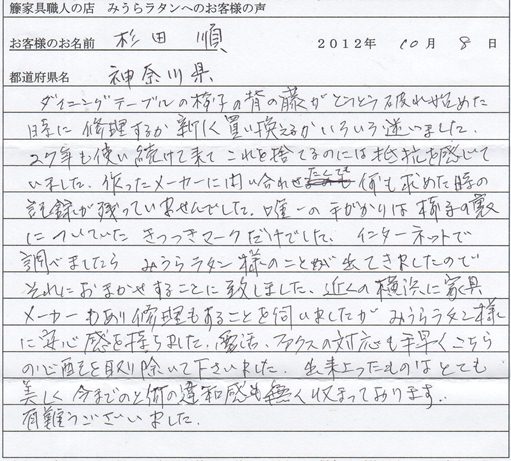 籐家具職人の店 みうらラタンへのお客様の声
お客様のお名前 杉田 順 2012年 10月 8日
都道府県名 神奈川県
ダイニングテーブルの椅子の背の藤がとうとう破れ始めた
時に 修理するか新しく買い換えるかいろいろ迷いました.
27年も使い続けて来て これを捨てるのには抵抗を感じて
いました. 作ったメーカーに問い合わせたんでも 何も求めた時の
記録が残っていませんでした. 唯一の手がかりは 椅子の裏
についていた きつつきマークだけでした. インターネットで
調べましたら みうらラタン様のことが出てきましたので
それにおまかせすることに致しました. 近くの横浜に家具
メーカーもあり修理もあることを伺いましたが みうらラタン様
に安心感を持ちました. 電話、ファクスの対応も手早くこちら
の心配を取り除いて下さいました. 出来上ったものはとても
美しく 今までのと何の違和感も無く収まっております.
有難うございました.